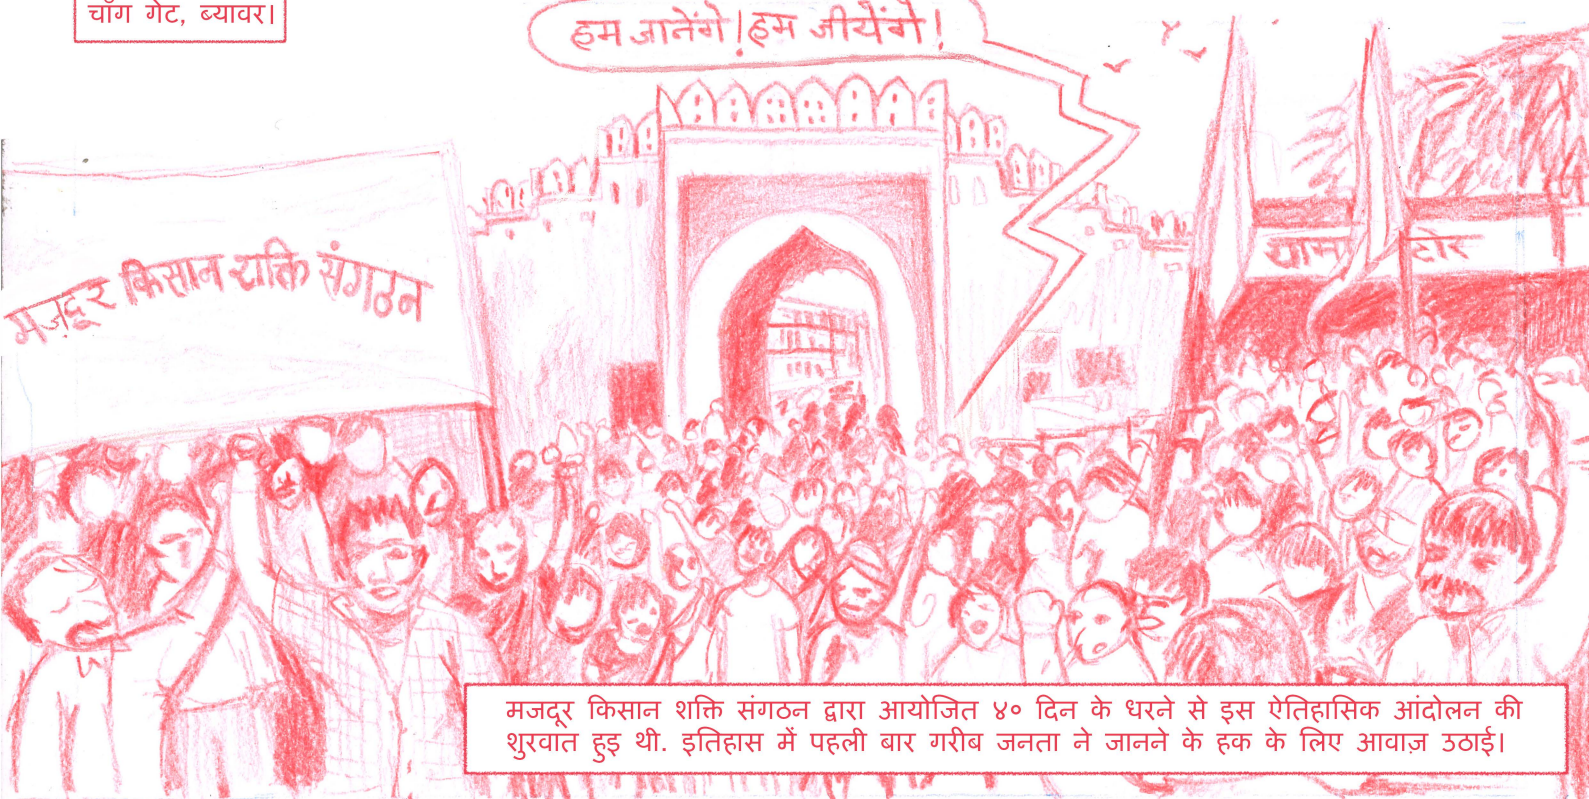 चाँग गेट, ब्यावर।
हम जानेंगे! हम जीयेंगे!
मजदूर किसान शक्ति संगठन
टोर
मजदूर किसान शक्ति संगठन द्वारा आयोजित ४० दिन के धरने से इस ऐतिहासिक आंदोलन की
शुरवात हुइ थी. इतिहास में पहली बार गरीब जनता ने जानने के हक के लिए आवाज़ उठाई।